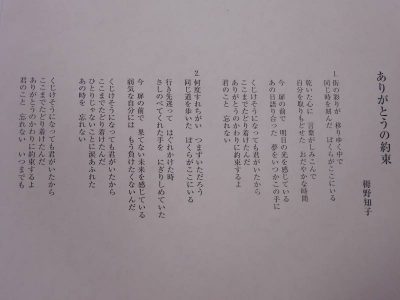 ありがとうの約束
櫻野知子
1. 街の彩りが 移りゆく中で
同じ時を刻んだ ぼくらがここにいる
乾いた心に 言葉がしみこんで
自分を取りもどせた おだやかな時間
今 扉の前で 明日の光を感じている
あの日語り合った 夢をいつかこの手に
くじけそうになっても君がいたから
ここまでたどり着けたんだ
ありがとうのかわりに約束するよ
君のこと 忘れない
2. 何度すれちがい つまずいただろう
同じ道を歩いた ぼくらがここにいる
行き先迷って はぐれかけた時
さしのべてくれた手を にぎりしめていた
今 扉の前で 果てない未来を感じている
弱気な自分には もう負けたくないんだ
くじけそうになっても君がいたから
ここまでたどり着けたんだ
ひとりじゃないことに涙あふれた
あの時を 忘れない
くじけそうになっても君がいたから
ここまでたどり着けたんだ
ありがとうのかわりに約束するよ
君のこと 忘れない いつまでも